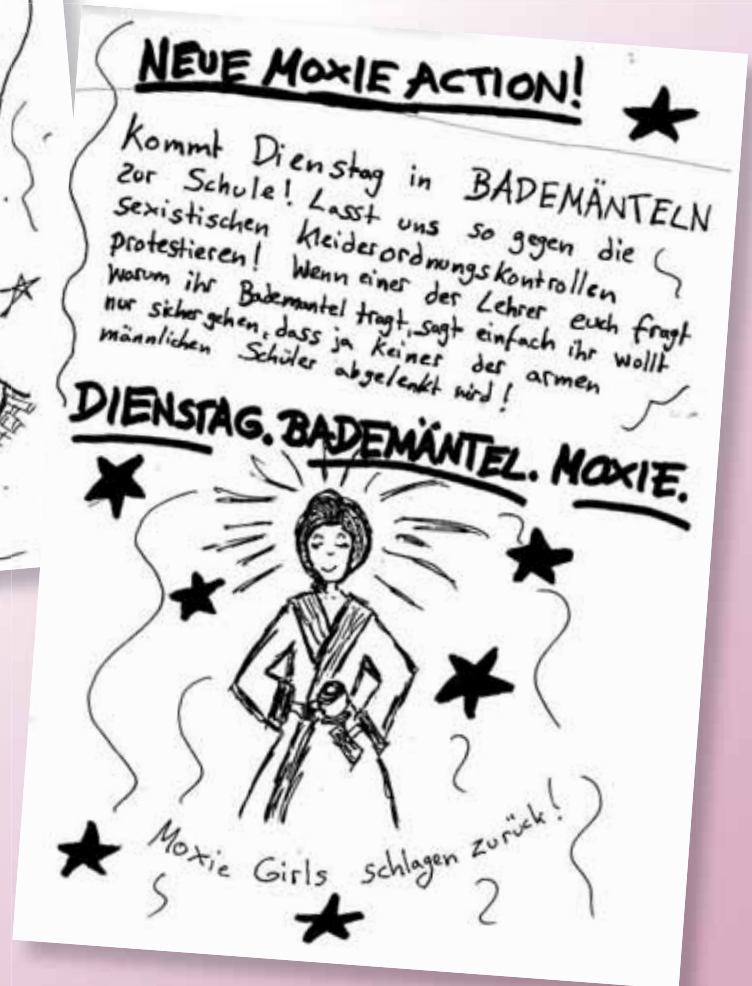 NEUE MOXIE ACTION!
Kommt Dienstag in BADEMÄNTELN
zur Schule! Lasst uns so gegen die
sexistischen Kleiderordnungskontrollen
protestieren! Wenn einer der Lehrer euch fragt
warum ihr Bademäntel tragt, sagt einfach ihr wollt
nur sicher gehen, dass ja keines der armen
männlichen Schüler abgelenkt wird!
DIENSTAG. BADEMÄNTEL. MOXIE.
Moxie Girls schlagen zurück!